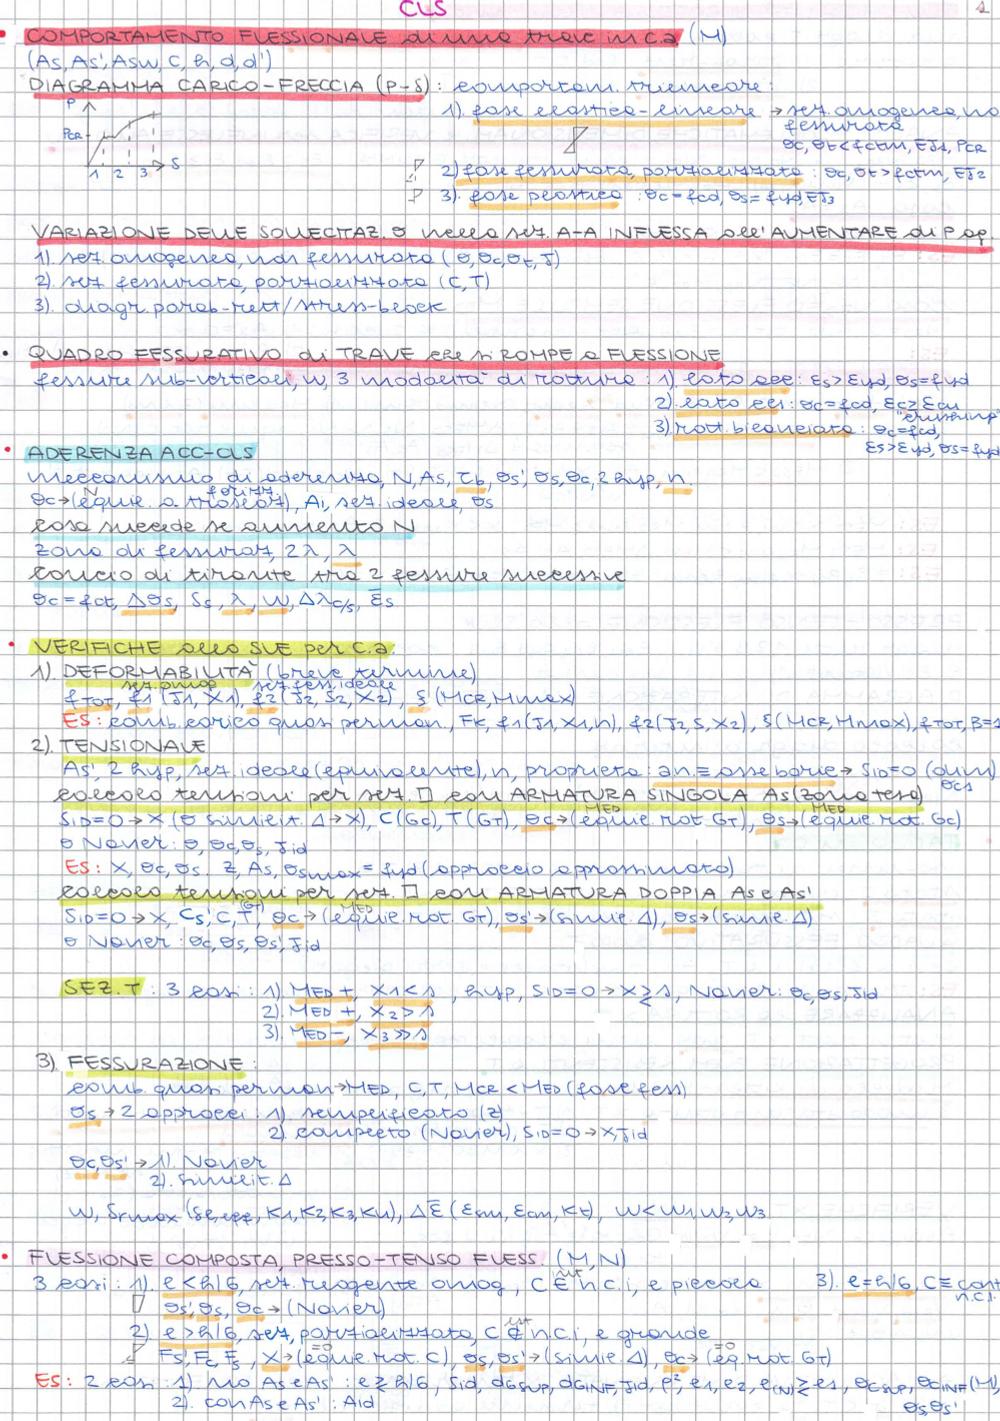 CLS
1
• COMPORTAMENTO FLESSIONALE di una trave in c.a (M)
(As, As', Asw, C, h, d, d')
DIAGRAMMA CARICO-FRECCIA (P-δ): comportam. trilineare:
P
PCR
1 2 3 δ
1). fase elastico-lineare → sez. omogenea, no
fessurata
σc, σt<fctm, EJ1, PCR
2) fase fessurata, parzializzata : σc, σt>fctm, EJ2
3). fase plastica : σc=fcd, σs=fyd, EJ3
VARIAZIONE DELLE SOLLECITAZ. σ nella sez. A-A INFLESSA all'AUMENTARE di P ap.
1) sez. omogenea, non fessurata (σ, σc, σt, J)
2). sez fessurata, parzializzata (C, T)
3). diagr. parab-rett/stress-block
• QUADRO FESSURATIVO di TRAVE che si ROMPE a FLESSIONE
fessure sub-verticali, w, 3 modalità di rottura : 1). lato acc: εs>εyd, σs=fyd
2). lato cls: σc=fcd, εc≥εcu
"crushing"
3) rott. bilanciata: σc=fcd,
εs>εyd, σs=fyd
• ADERENZA ACC-CLS
meccanismo di aderenza, N, As, τb, σs', σs, σc, 2 hyp, n
σc→(equil. a traslaz), Ai, sez. ideale, σs
cosa succede se aumento N
zona di fessuraz, 2λ, λ
concio di tirante tra 2 fessure successive
σc=fct, Δσs, Ss, λ, w, Δλc/s, ε̄s
• VERIFICHE allo SLE per c.a:
1). DEFORMABILITÀ (breve termine)
sez. omog sez. fess. ideale
fTOT, f1 (J1, X1), f2 (J2, S2, X2), ξ (MCR, Mmax)
ES: comb. carico quasi perman., FK, f1(J1, X1, n), f2(J2, S, X2), ξ(MCR, Mmax), fTOT, β=1
2). TENSIONALE
As', 2 hyp, sez. ideale (equivalente), n, proprietà: an≡asse baric→ SID=0 (dim)
calcolo tensioni per sez. □ con ARMATURA SINGOLA As (zona tesa) σcs
SID=0→X (o similit. Δ→X), C(GC), T(GT), σc→(equil. rot GT), σs→(equil. rot. GC)
o Navier: σ, σc, σs, Jid
ES: X, σc, σs. z, As, σsmax=fyd (approccio approssimato)
calcolo tensioni per sez. □ con ARMATURA DOPPIA As e As'
SID=0→X, Cs', C, T, σc→(equil. rot. GT), σs'→(simil. Δ), σs→(simil. Δ)
o Navier: σc, σs, σs', Jid
SEZ. T : 3 casi: 1) MED+, X1<s, hyp, SID=0→X≷s, Navier: σc, σs, Jid
2). MED+, X2>s
3). MED-, X3≫s
3). FESSURAZIONE:
comb. quasi perman→MED, C, T, MCR<MED (fase fess)
σs → 2 approcci : 1) semplificato (z)
2). completo (Navier), SID=0→X, Jid
σc, σs' → 1). Navier
2). similit. Δ
w, Srmax (ρp,eff, K1, K2, K3, K4), Δε̄ (εsm, εcm, Kt), w<w1, w2, w3
• FLESSIONE COMPOSTA, PRESSO-TENSO FLESS. (M, N)
3 casi: 1). e<h/6, sez. reagente omog, C ∈ n.c.i, e piccola
3). e=h/6, C≡cont
n.c.i.
σs', σs, σc→(Navier)
2). e>h/6, sez, parzializzata, C ∉ n.c.i, e grande
Fs', Fc, Fs, X→(equil. rot. C), σs, σs'→(simil. Δ), σc→(eq. rot. GT)
ES: 2 casi: 1) no As e As': e≷h/6, Sid, dGSUP, dGINF, Jid, ρ², e1, e2, e(N)≷e1, σcsup, σcinf (M),
σs, σs'
2). con As e As': Aid